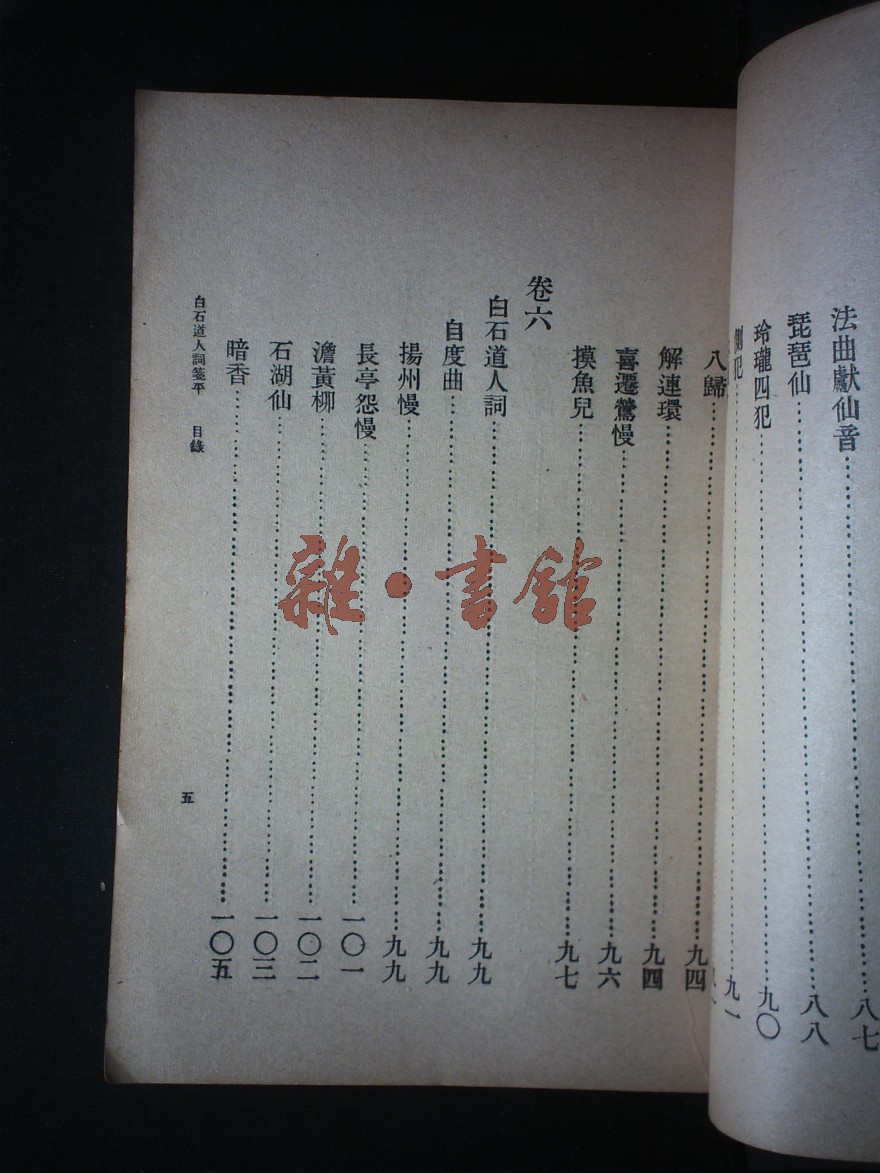 法曲獻仙音……八七
琵琶仙……八八
玲瓏四犯……九〇
側犯……九一
八歸……九四
解連環……九四
喜遷鶯慢……九六
摸魚兒……九七
卷六
白石道人詞……九九
自度曲……九九
揚州慢……九九
長亭怨慢……一〇一
澹黃栁……一〇二
石湖仙……一〇三
暗香……一〇五
白石道人詞箋平 目錄
五
雜·書館